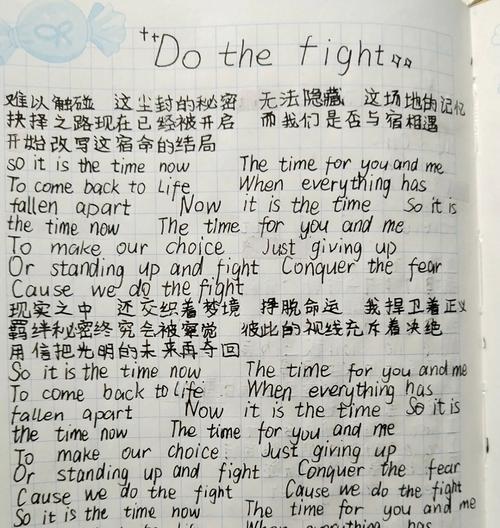 Do the fight
难以触碰 这尘封的秘密 无法隐藏 这场地的记忆
抉择之路现在已经被开启 而我们是否与宿相遇
开始改写这宿命的结局
so it is the time now The time for you and me
To come back to life When everything has
fallen apart Now it is the time So it is
the time now The time for you and me
To make our choice Just giving up
Or standing up and fight Conquer the fear
Cause we do the fight
现实之中 还交织着梦境 挣脱命运 我捍卫着正义
羁绊秘密终究会被察觉 彼此的视线充斥着决绝
用信把光明的未来再夺回
So it is the time now The time for you and me
To come back to life When everything has
fallen apart Now it is the time So it is
the time now The time for you and me
To make our choice Just giving up
Or standing up and fight Conquer the fear
Cause we do the fight Cause we do the fight
So it is the time now The time for you and me
to life When everything has